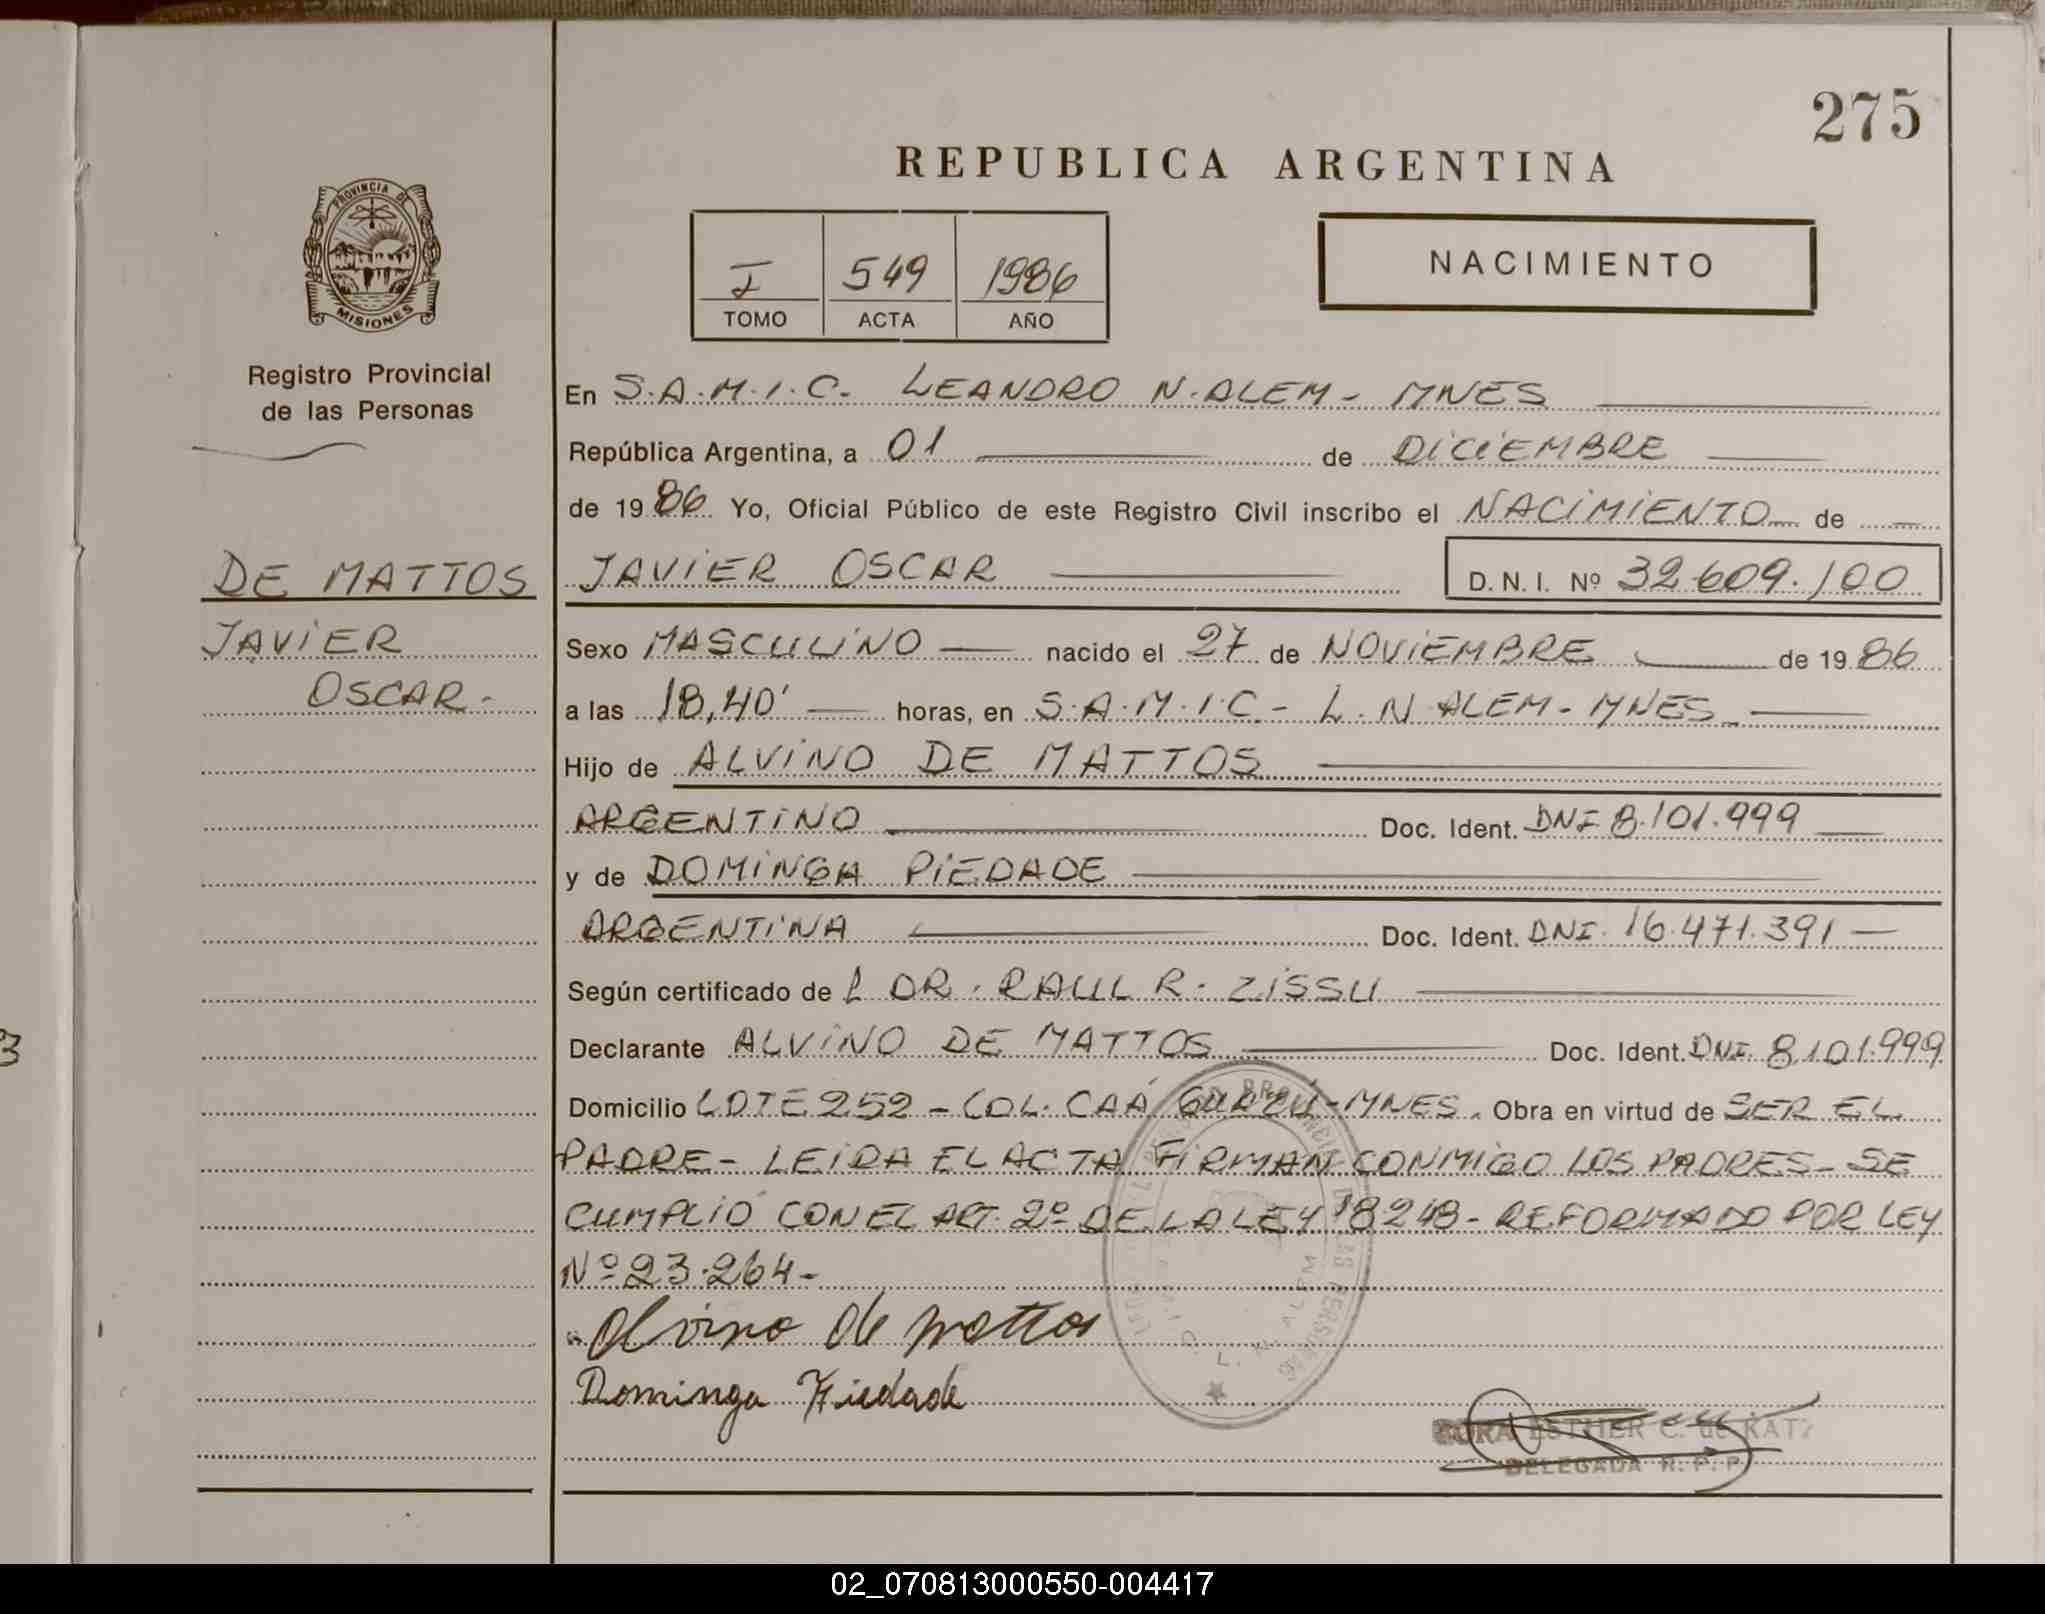 275
REPUBLICA ARGENTINA
PROVINCIA DE
MISIONES
Registro Provincial
de las Personas
I 549 1986
TOMO ACTA AÑO
NACIMIENTO
DE MATTOS
JAVIER
OSCAR.-
En S.A.M.I.C. LEANDRO N. ALEM - MNES
República Argentina, a 01 de DICIEMBRE
de 1986 Yo, Oficial Público de este Registro Civil inscribo el NACIMIENTO de
JAVIER OSCAR D.N.I. Nº 32.609.100
Sexo MASCULINO nacido el 27 de NOVIEMBRE de 1986
a las 18,40' horas, en S.A.M.I.C. - L.N ALEM - MNES
Hijo de ALVINO DE MATTOS
ARGENTINO Doc. Ident. DNI 8.101.999
y de DOMINGA PIEDADE
ARGENTINA Doc. Ident. DNI. 16.471.391
Según certificado de L DR. RAUL R. ZISSU
Declarante ALVINO DE MATTOS Doc. Ident. DNI. 8.101.999
Domicilio LOTE 252 - COL. CAÁ GUAZÚ - MNES. Obra en virtud de SER EL
PADRE - LEIDA EL ACTA FIRMAN CONMIGO LOS PADRES - SE
CUMPLIÓ CON EL ART. 2º DE LA LEY 18248 - REFORMADO POR LEY
Nº 23.264 -
Alvino de mattos
Dominga Piedade
L. N. ALEM
ESTHER C. de KATZ
DELEGADA R. P. P.
02_070813000550-004417